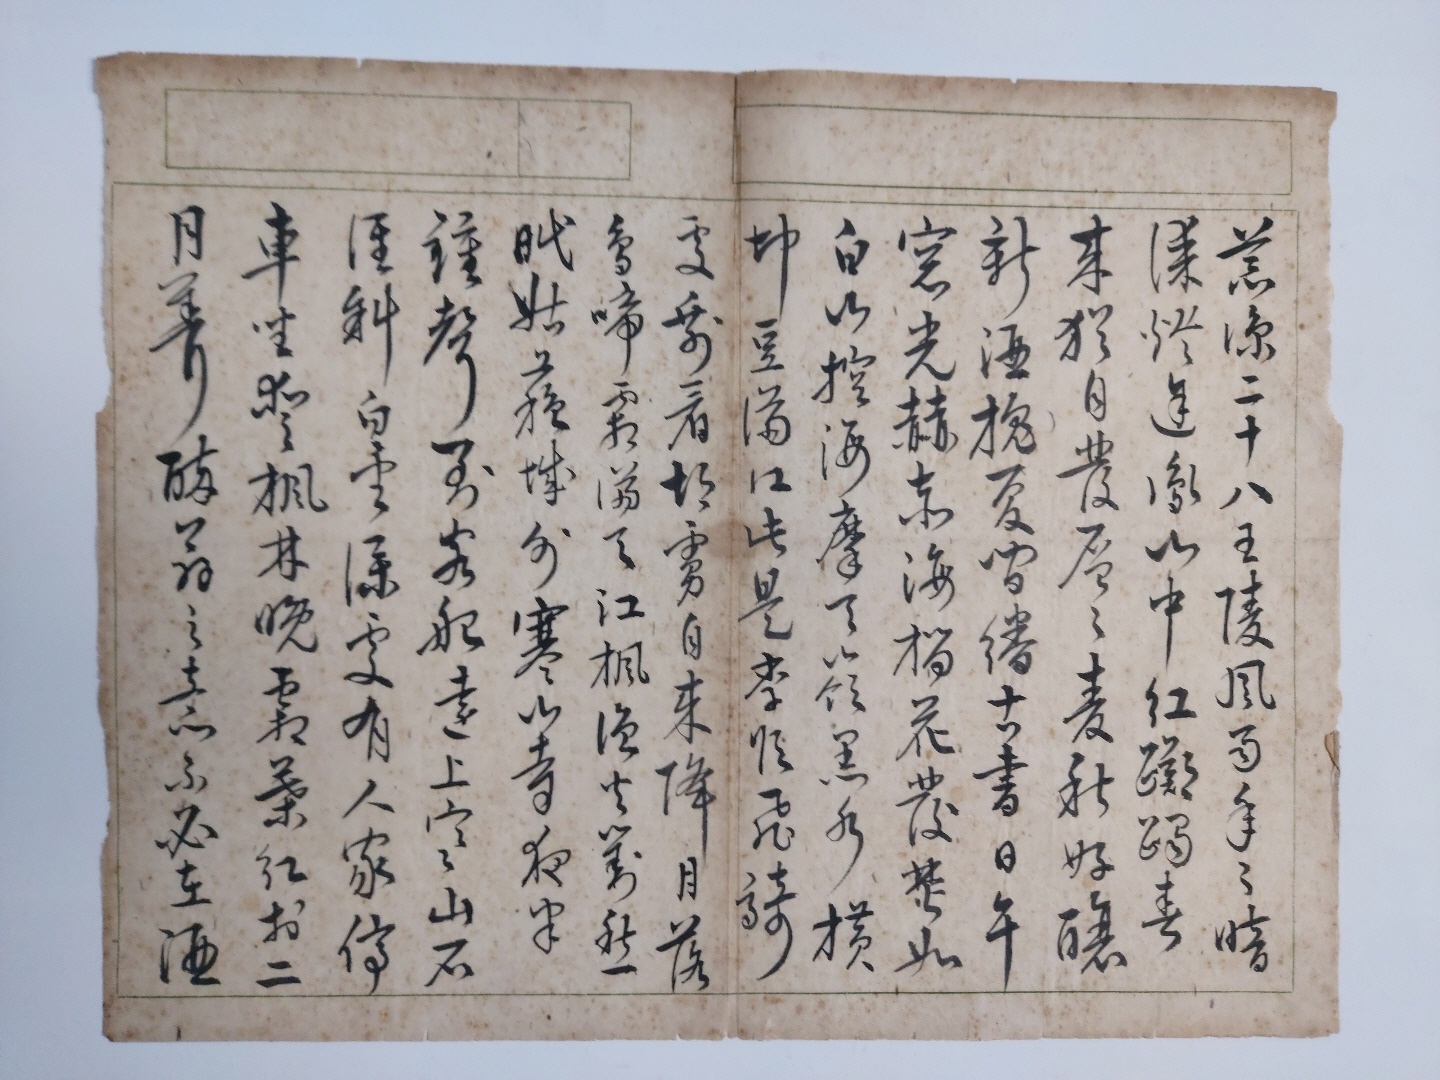 荒涼二十八王陵風雨年々暗
漆燈逢亂山中紅躑躅春
來猶自發層々麥秋好釀
新酒槐夏閒繙古書日午
窓光赫赤海榴花發焚如
白山控海摩天嶺黑水橫
坤豆滿江此是李侯飛騎
處剩看胡虜自來降月落
烏啼霜滿天江楓漁火對愁
眠姑蘇城外寒山寺夜半
鍾聲到客船遠上寒山石
徑斜白雲深處有人家停
車坐愛楓林晚霜葉紅於二
月花醉翁之意不必在酒